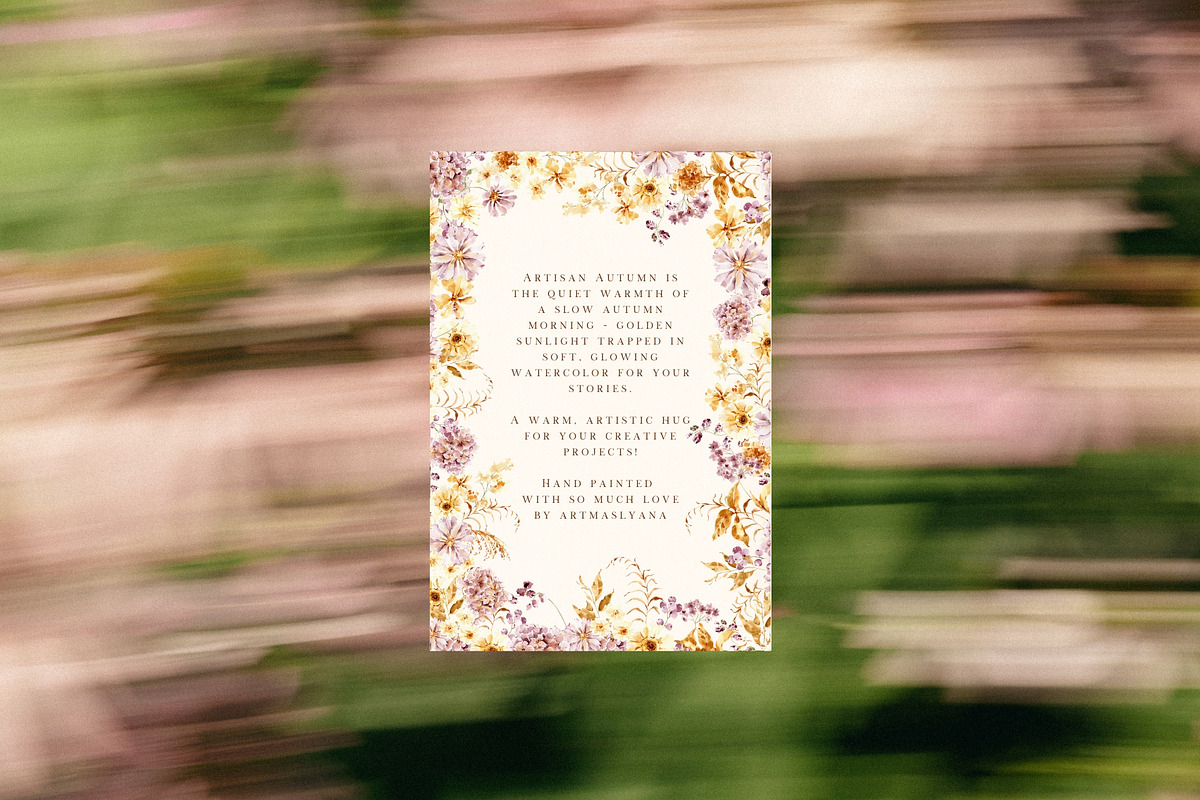 Artisan Autumn is
the quiet warmth of
a slow autumn
morning - golden
sunlight trapped in
soft, glowing
watercolor for your
stories.
A warm, artistic hug
for your creative
projects!
Hand painted
with so much love
by artmaslyana